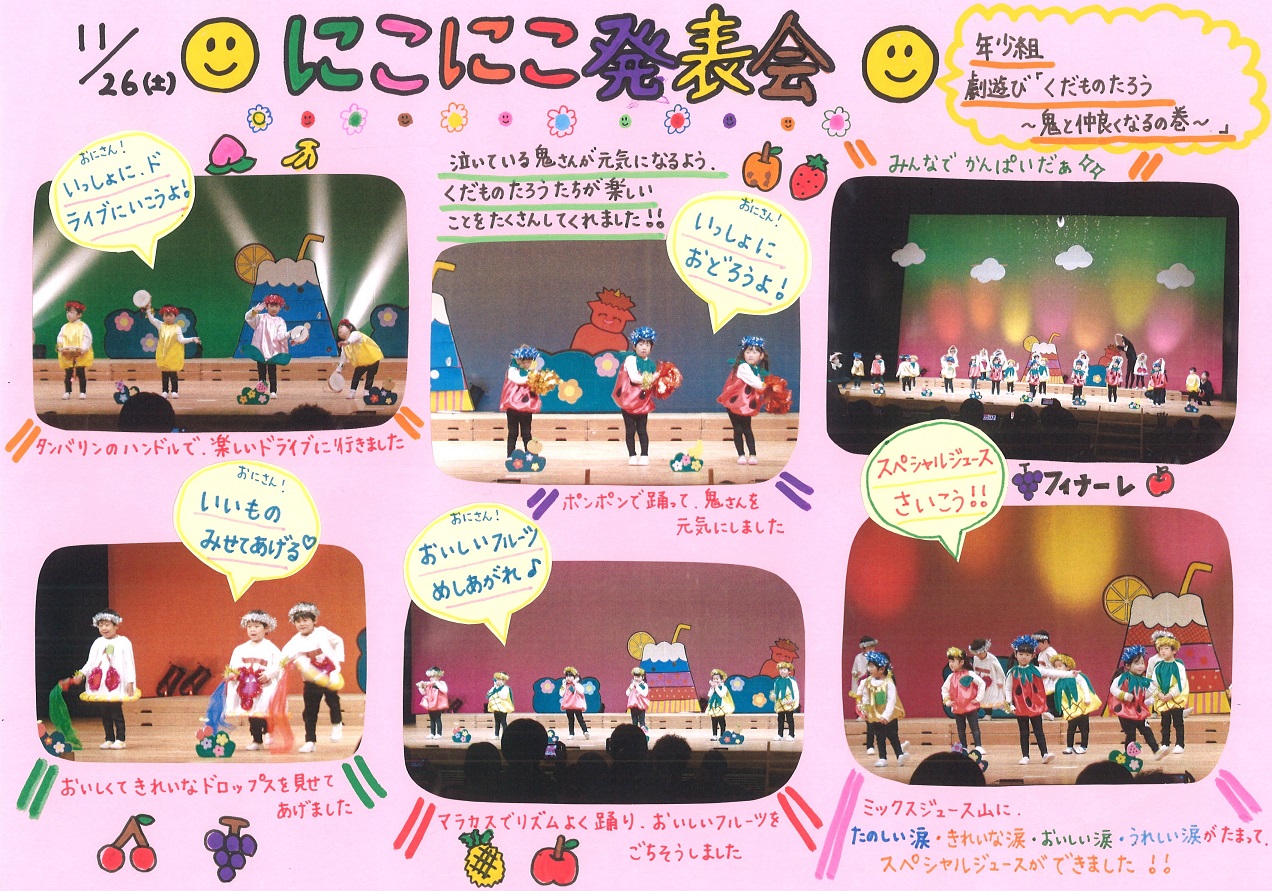 11/26(土)
にこにこ発表会
年少組
劇遊び「くだものたろう
～鬼と仲良くなるの巻～」
おにさん！
いっしょに、ド
ライブにいこうよ！
タンバリンのハンドルで、楽しいドライブに行きました
泣いている鬼さんが元気になるよう、
くだものたろうたちが楽しい
ことをたくさんしてくれました！！
おにさん！
いっしょに
おどろうよ！
ポンポンで踊って、鬼さんを
元気にしました
みんなでかんぱいだぁ
フィナーレ
おにさん！
いいもの
みせてあげる♡
おいしくてきれいなドロップスを見せて
あげました
おにさん！
おいしいフルーツ
めしあがれ♪
マラカスでリズムよく踊り、おいしいフルーツを
ごちそうしました
スペシャルジュース
さいこう！！
ミックスジュース山に、
たのしい涙・きれいな涙・おいしい涙・うれしい涙がたまって、
スペシャルジュースができました！！